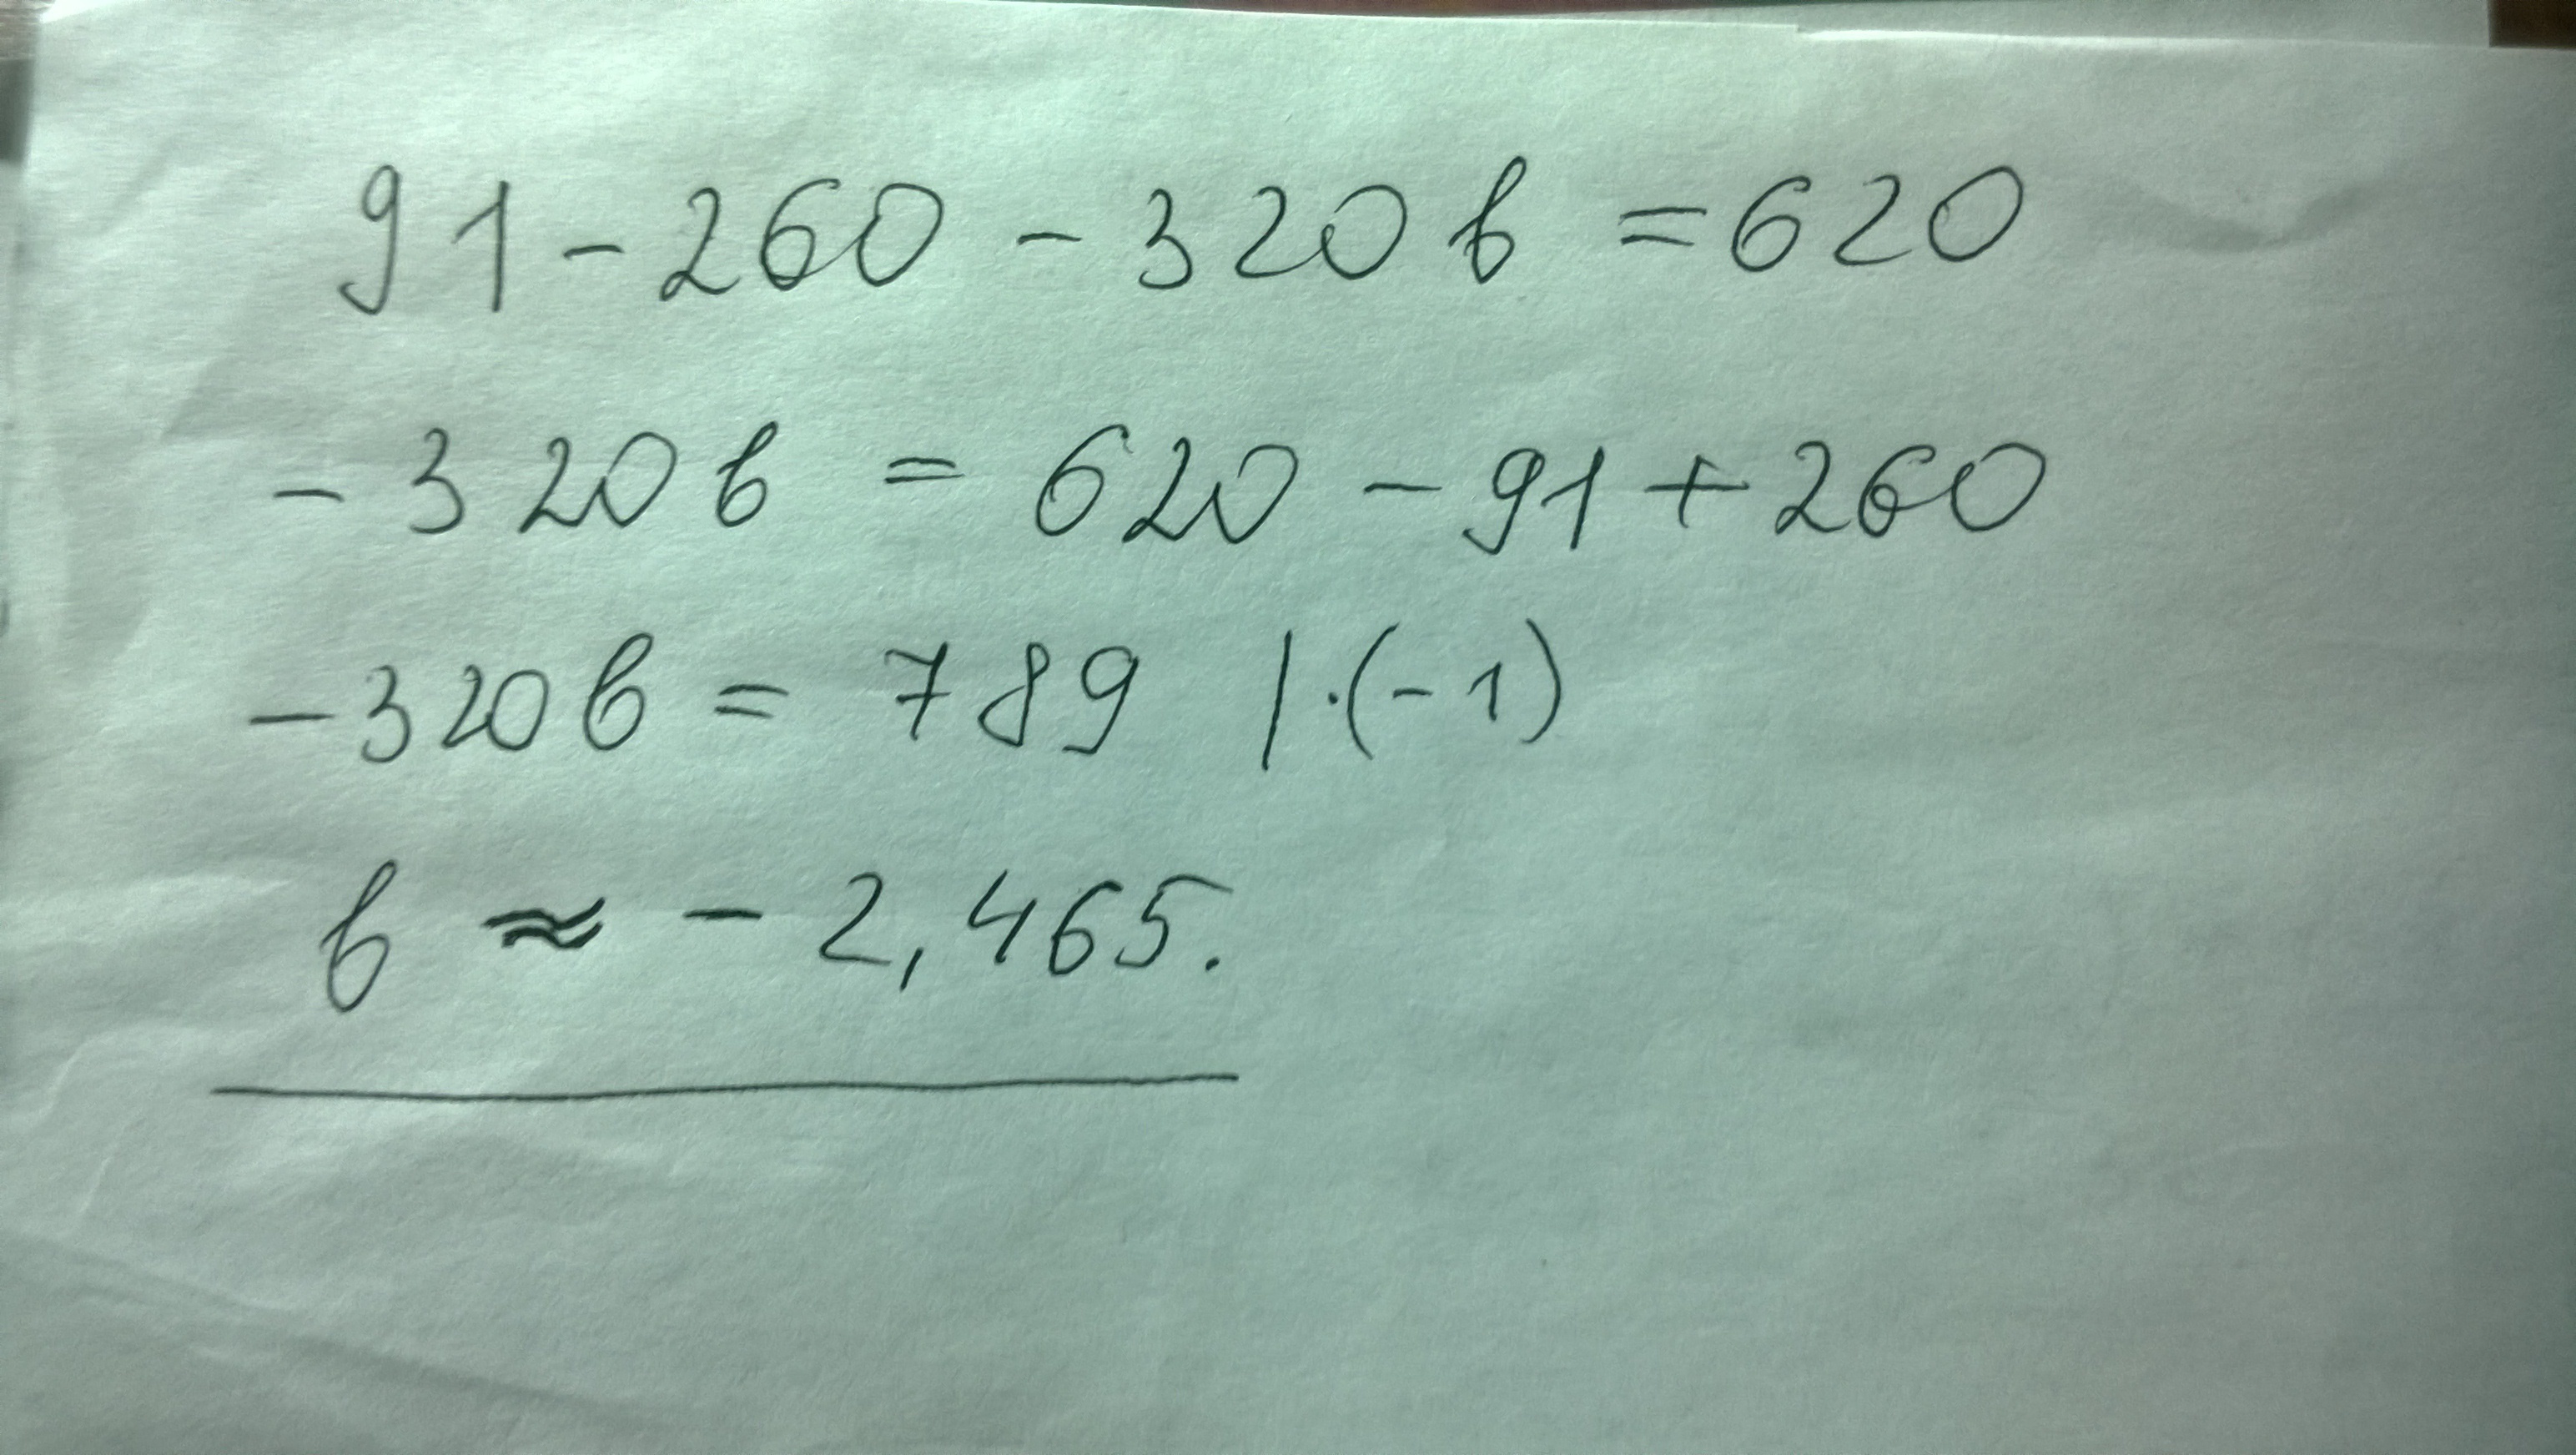 91 - 260 - 320 b = 620
- 320 b = 620 - 91 + 260
- 320 b = 789 | · (- 1)
b ≈ - 2,465.